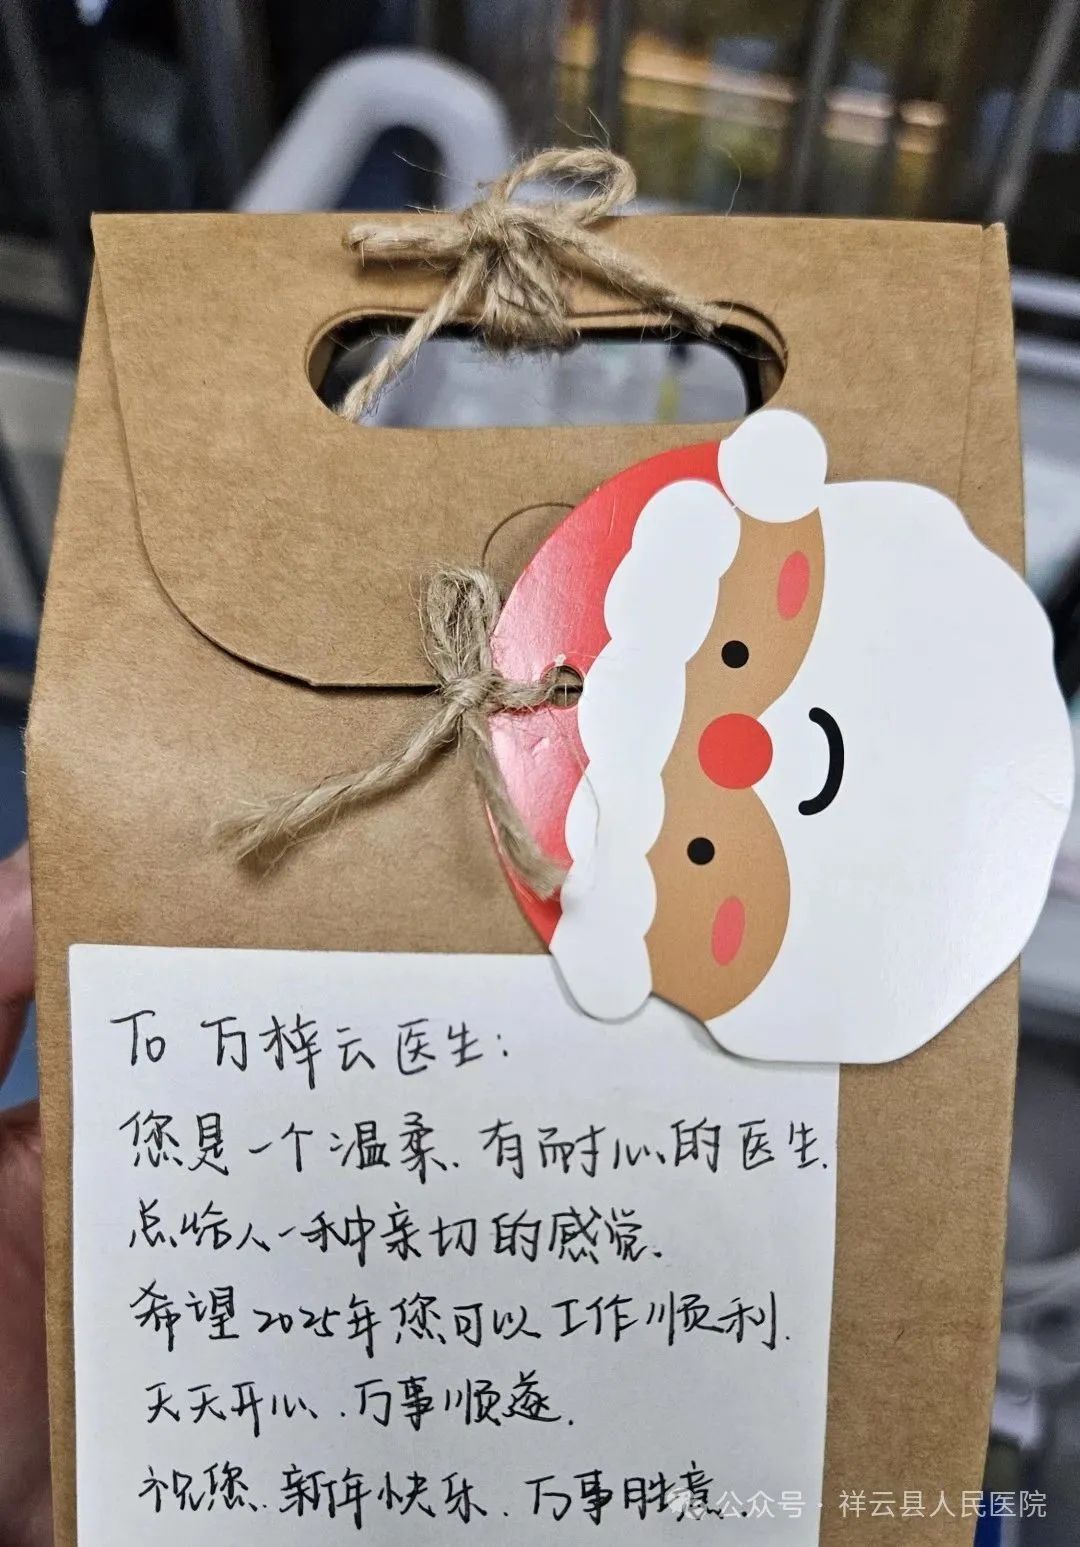 To 万梓云医生:
您是一个温柔、有耐心的医生,
总给人一种亲切的感觉.
希望2025年您可以工作顺利.
天天开心、万事顺遂.
祝您、新年快乐、万事胜意.
公众号·祥云县人民医院